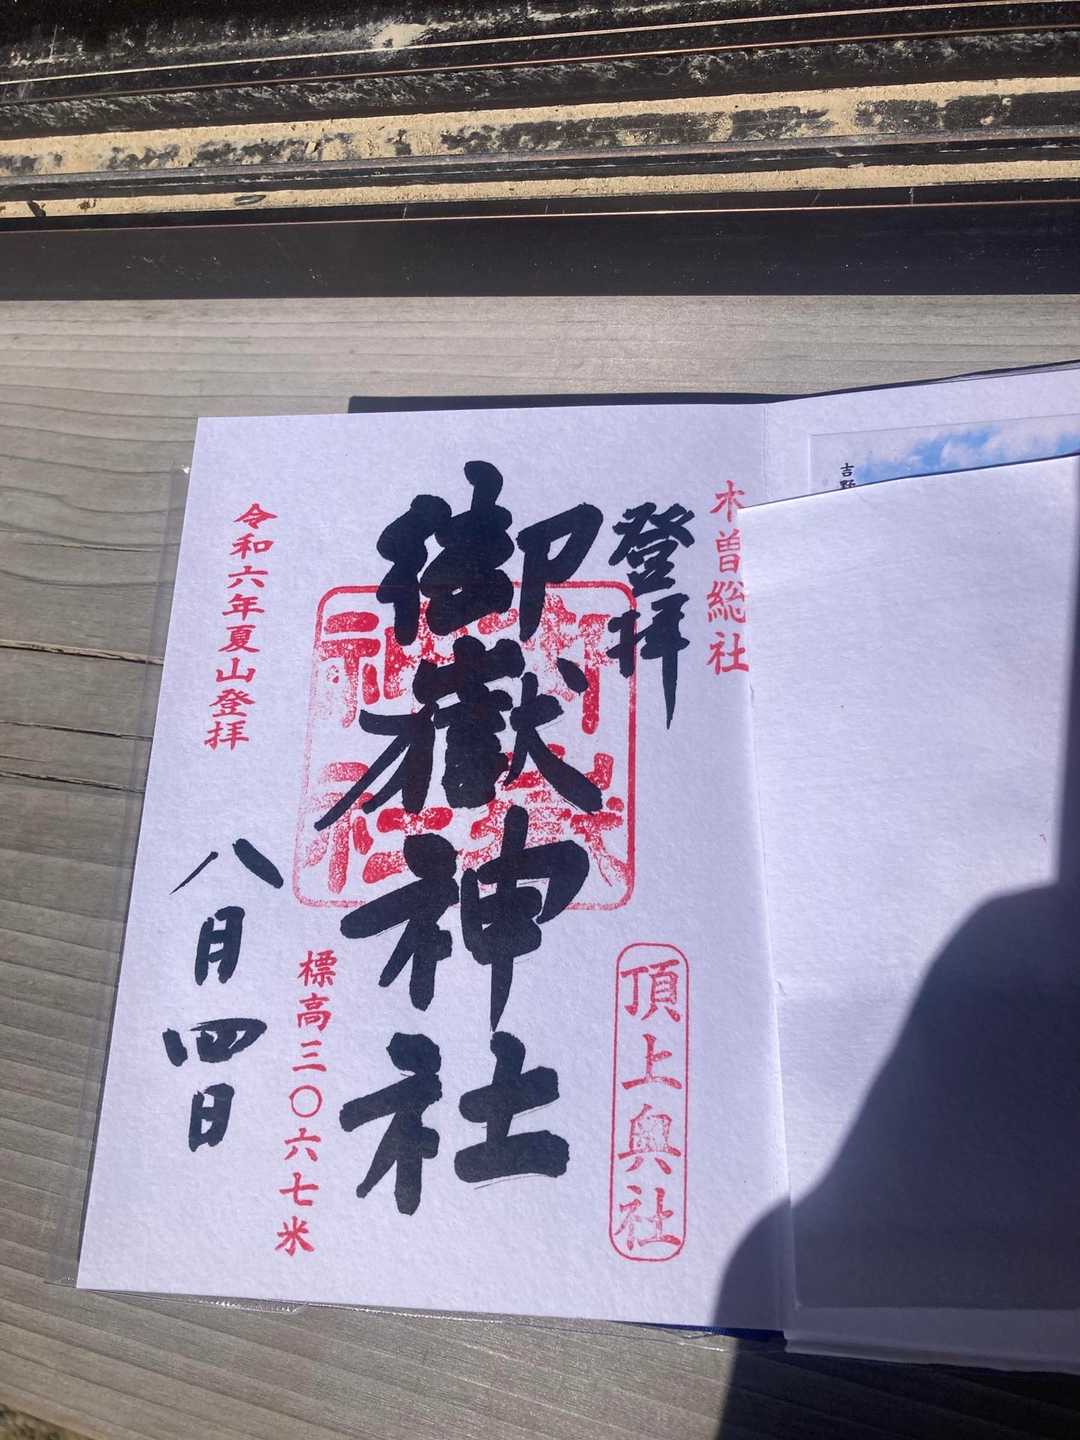 吉野
木曽総社
登拝
頂上奥社
御嶽神社
御嶽
神社
標高三〇六七米
令和六年夏山登拝
八月四日